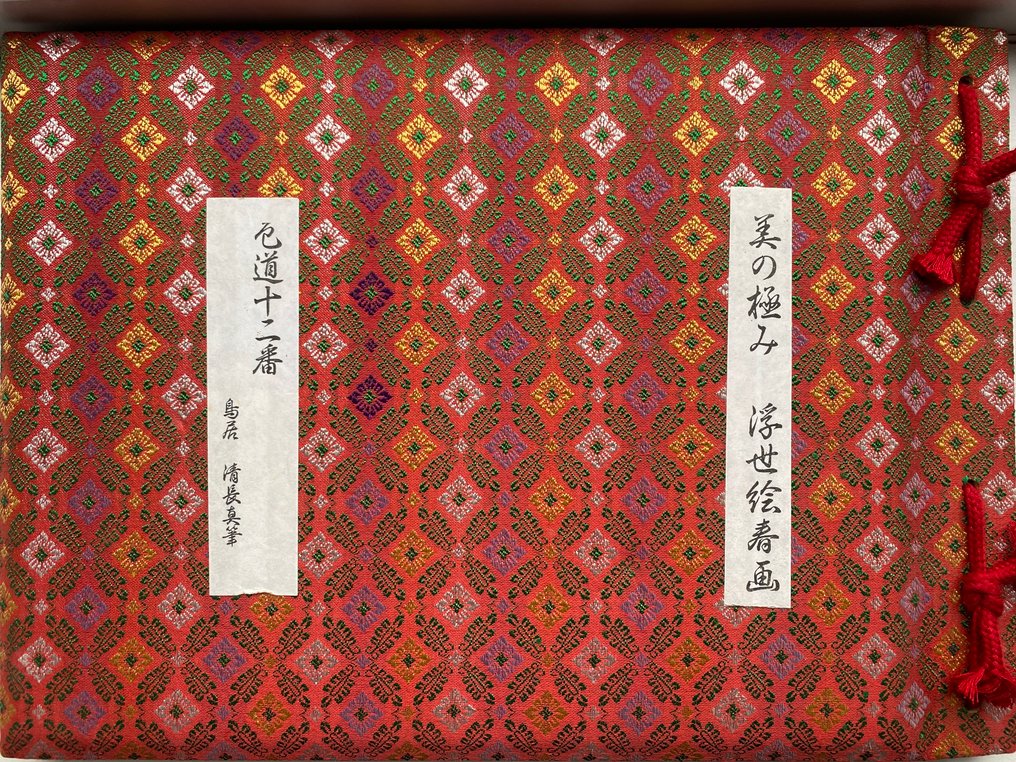 美の極み 浮世絵春画
色道十二番
鳥居 清長真筆